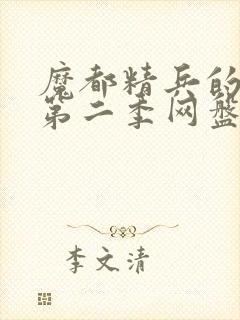 魔都精兵的
第二季网盘
李文清